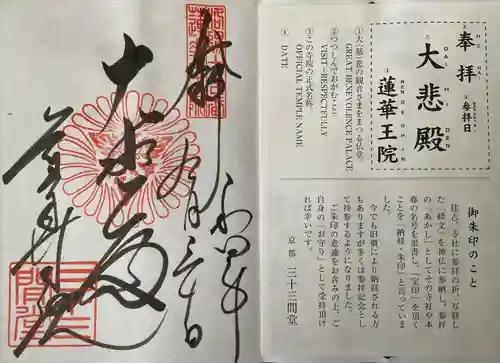 奉拝
④参拝日
大悲殿
DAI HI DEN
蓮華王院
①大(慈)悲の観音さまをまつる仏堂
GREAT BENEVOLENCE PALACE
②つつしんでおがむこと
VISIT-RESPECTFULLY
③この寺院の正式名称
OFFICIAL TEMPLE NAME
④DATE
御朱印のこと
往古、寺社に参拝の折、写経し
た「経文」を神仏に奉納し、参拝
の「あかし」としてその寺社や本
尊の名号を墨書し、「宝印」を頂く
ことを「納経・朱印」と言っていま
した。
今でも旧慣により納経される方
もありますが多くは参拝記念とし
て持参するようになりました。
ご朱印の意義をお含みの上、ご
自身の「お守り」として受持頂け
れば幸いです。
京都 三十三間堂
奉拝
大悲殿